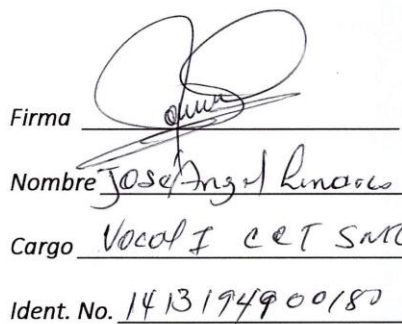 Firma
Nombre José Angel Linares
Cargo Vocal I CCT SNTC
Ident. No. 1413194900180